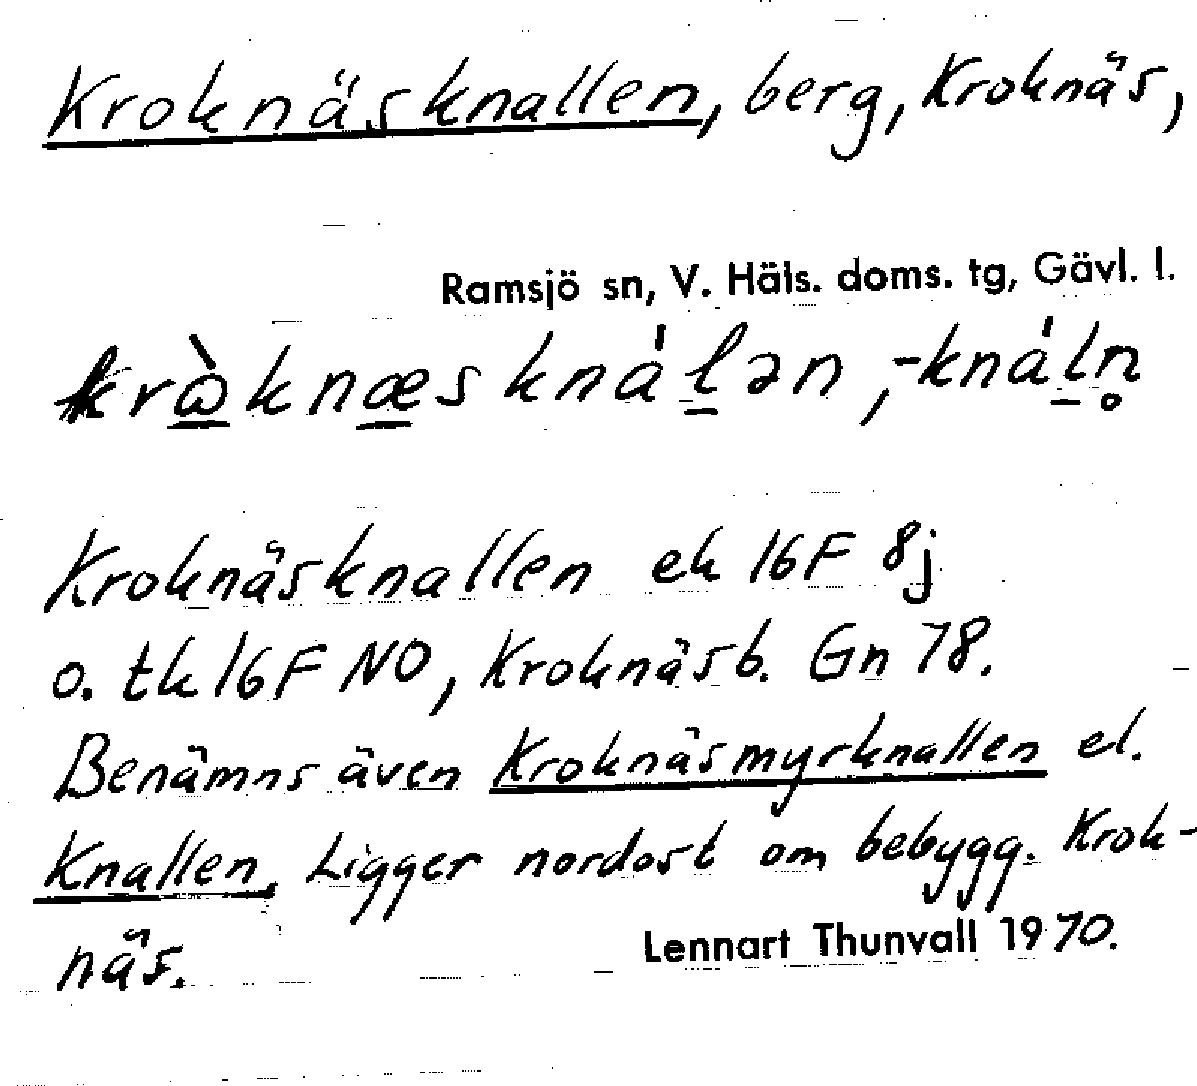 Kroknäsknallen, berg, Kroknäs,
Ramsjö sn, V. Häls. doms. tg, Gävl. l.
Kroknäsknallen ek 16F 8j
o. tk 16F NO, Kroknäsb. Gn 78.
Benämns även Kroknäsmyrknallen el.
Knallen. Ligger nordost om bebygg. Krok-
näs.
Lennart Thunvall 1970.